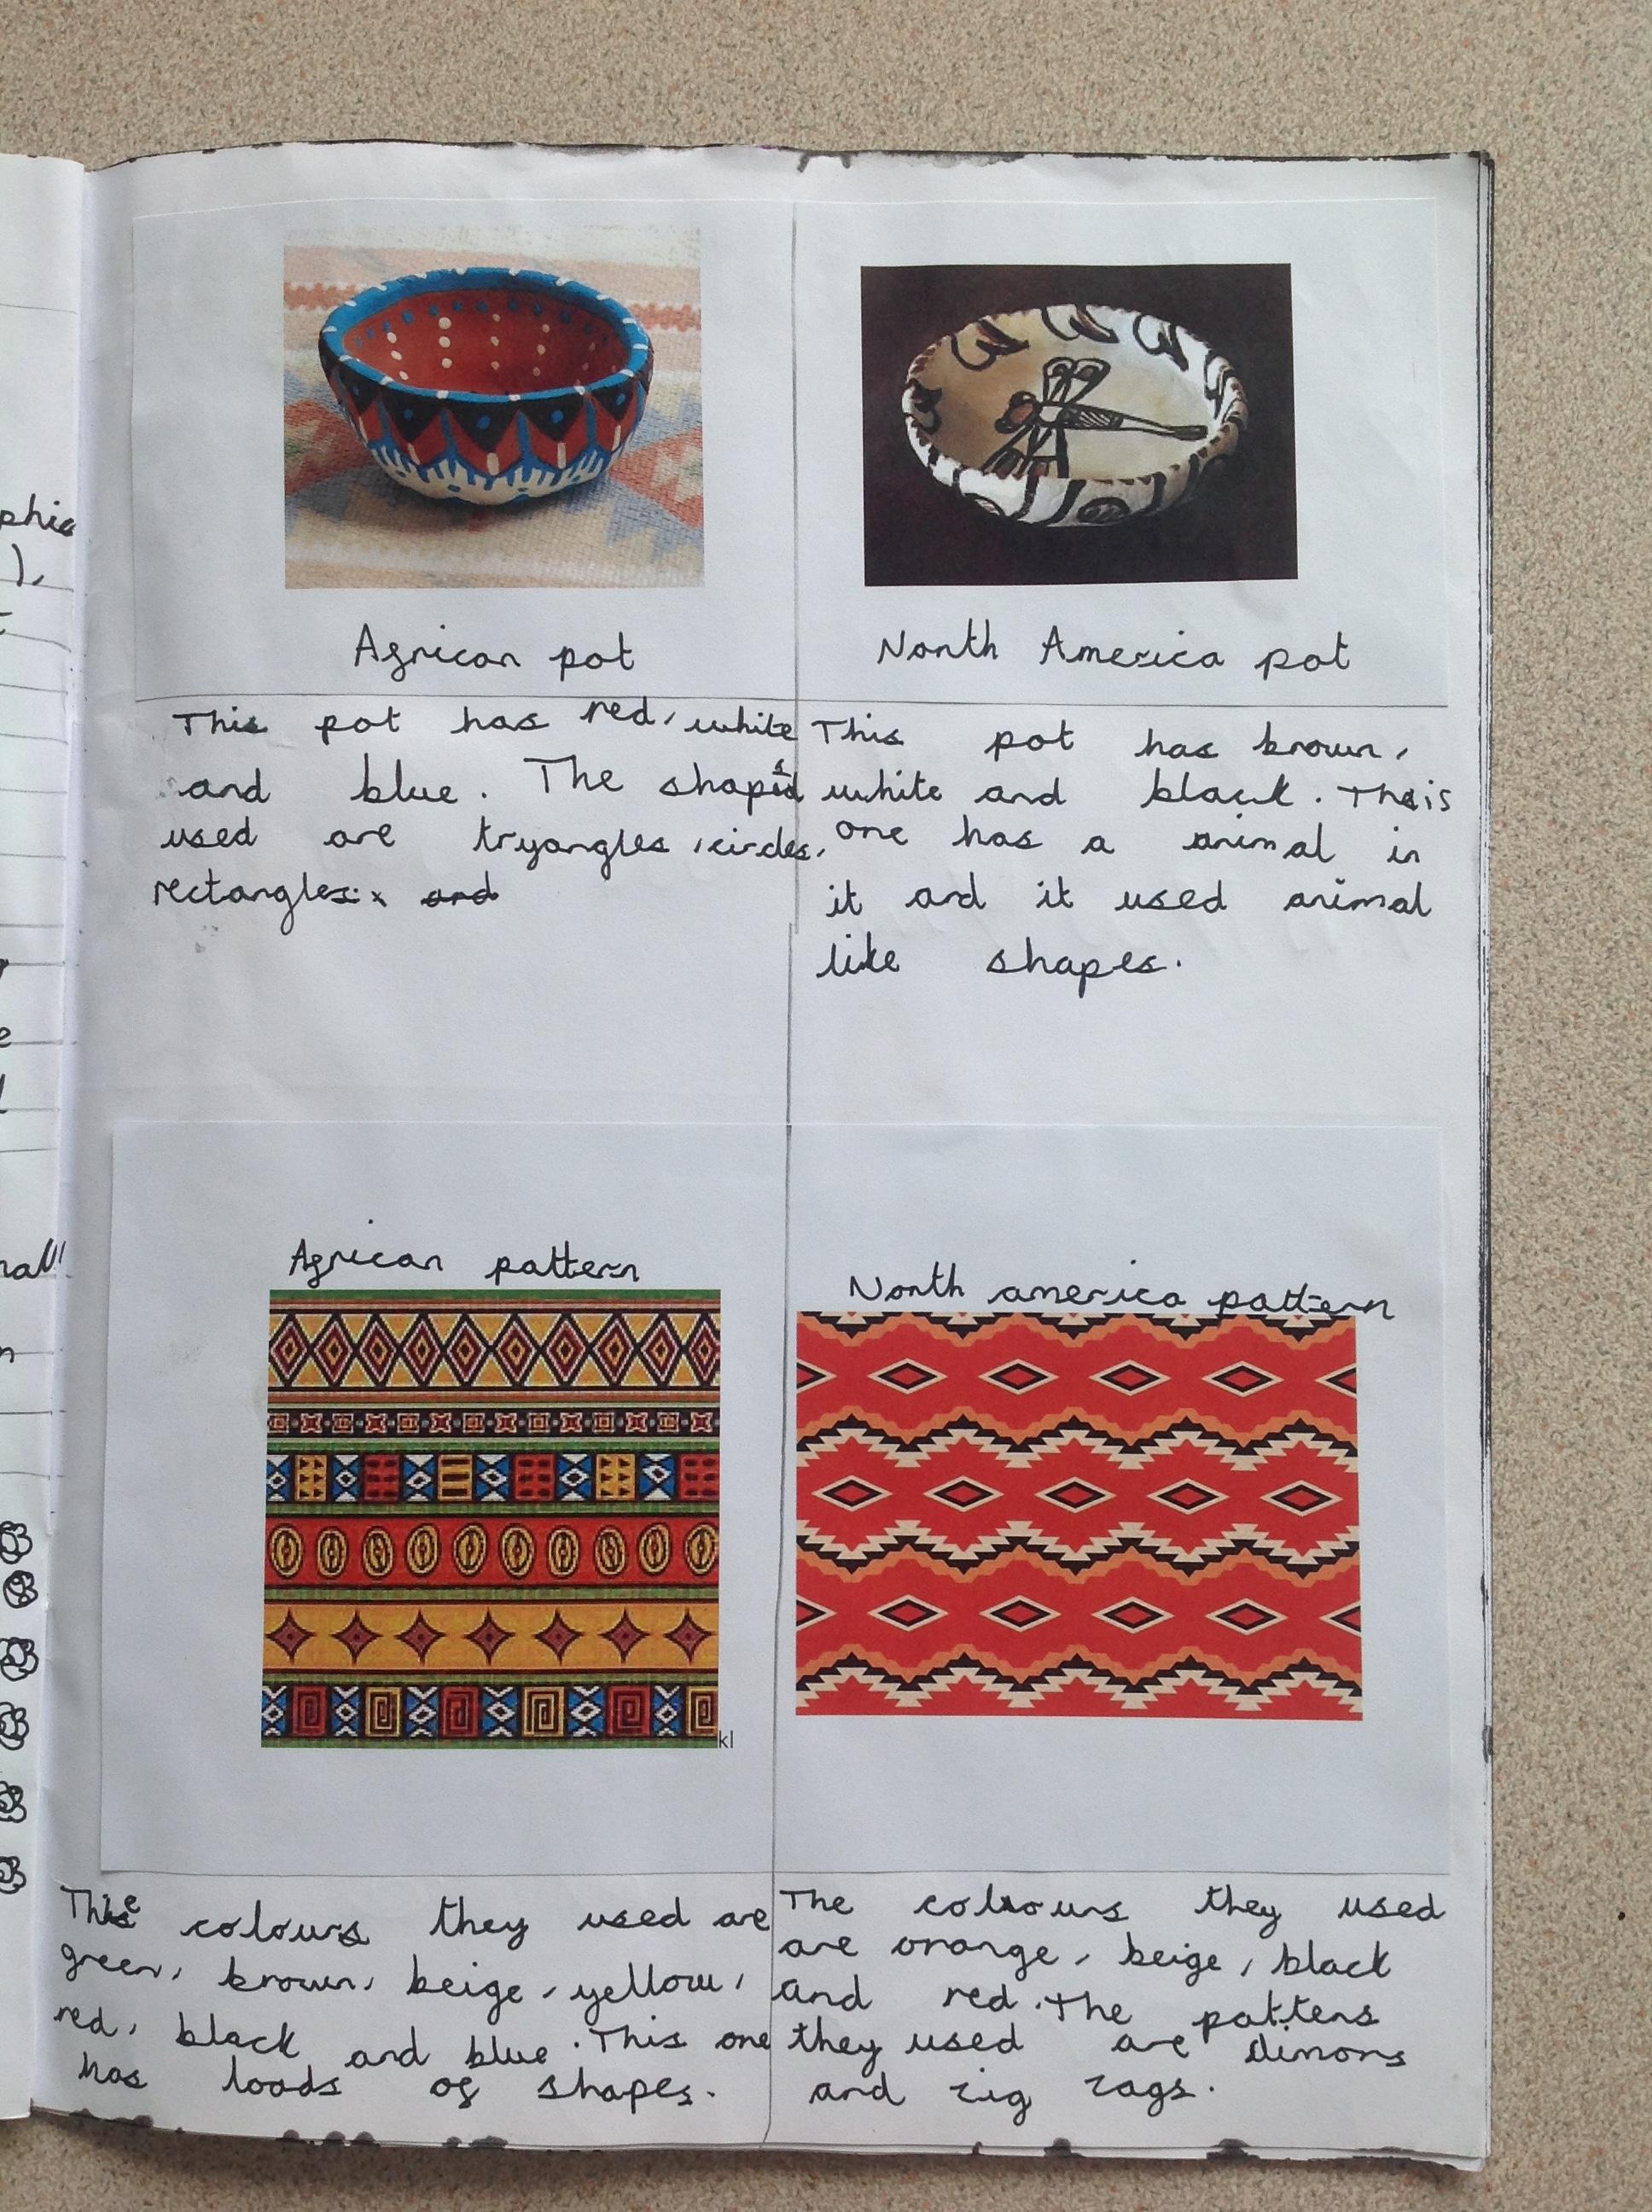 phic
),
African pot
This pot has red, white
and blue. The shapes
used are tryangles, circles,
rectangles. and
North America pot
This pot has brown,
white and black. This
one has a animal in
it and it used animal
like shapes.
African pattern
kl
The colours they used are
green, brown, beige, yellow,
red, black and blue. This one
has loads of shapes.
North america pattern
The colours they used
are orange, beige, black
and red. The pattens
they used are dimons
and zig zags.